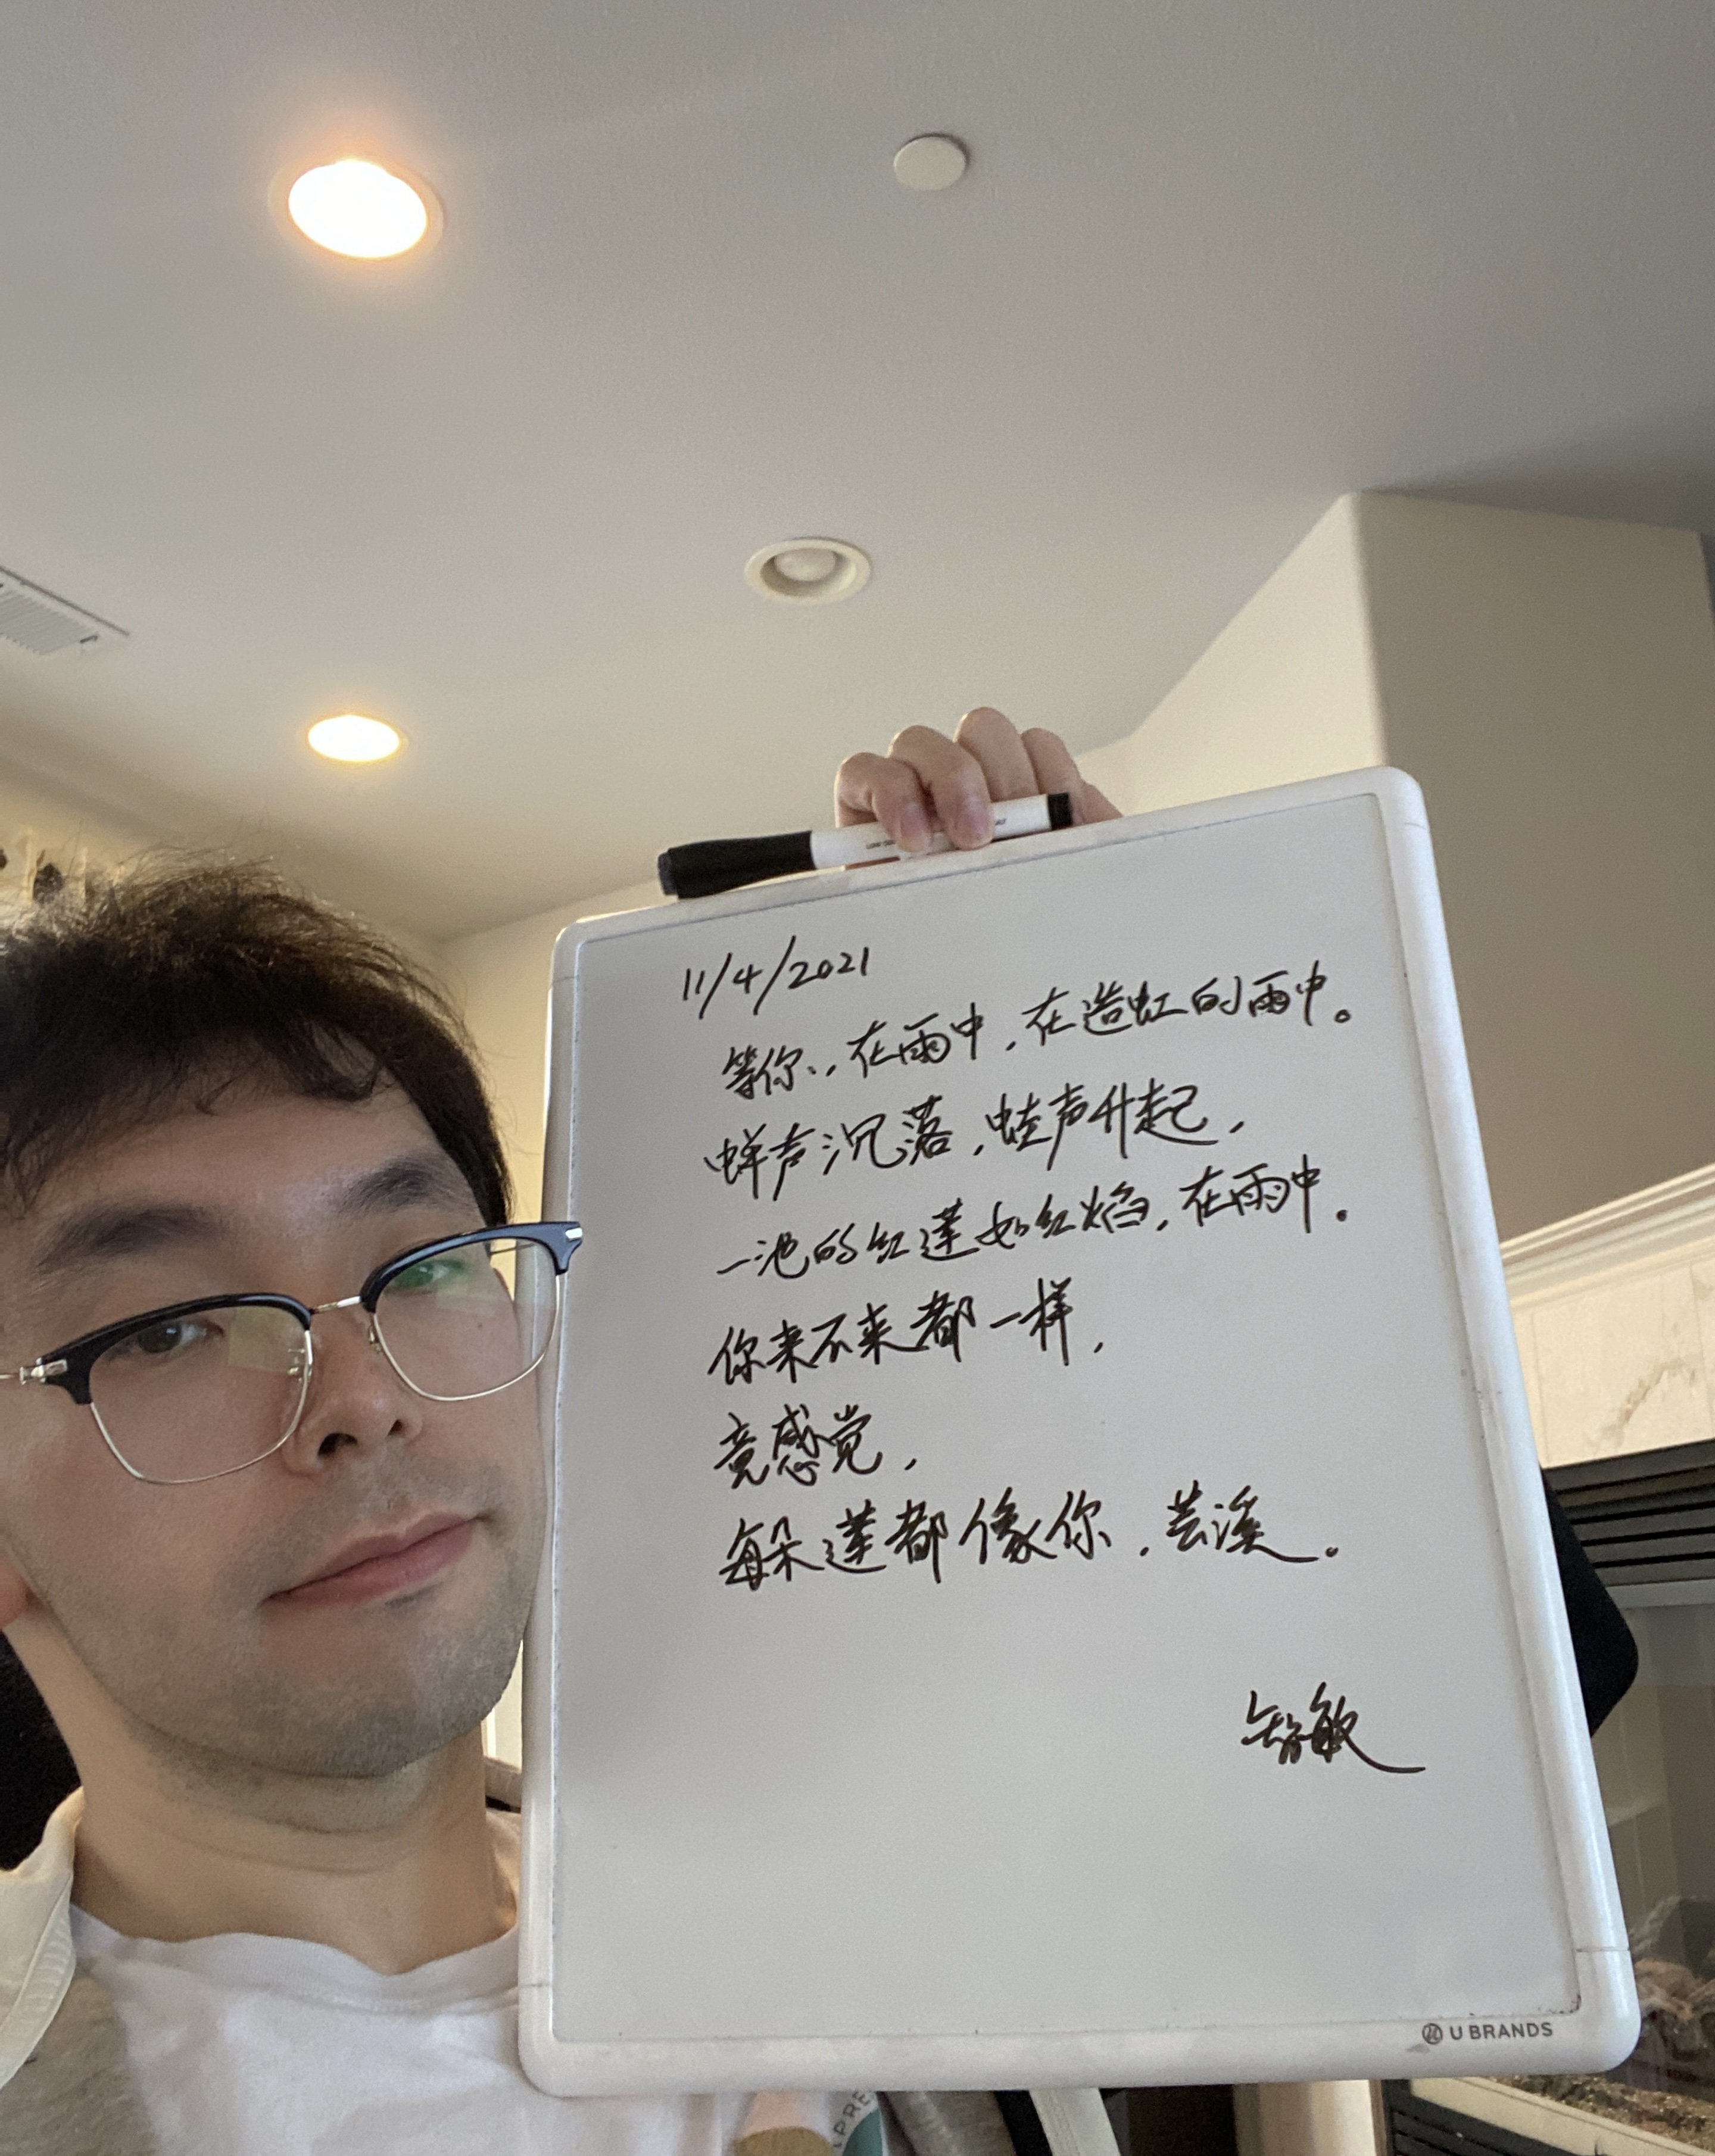 11/4/2021
等你,在雨中,在造虹的雨中。
蝉声沉落,蛙声升起,
一池的红莲如红焰,在雨中。
你来不来都一样,
竟感觉,
每朵莲都像你,芸溪。
智敏
U BRANDS